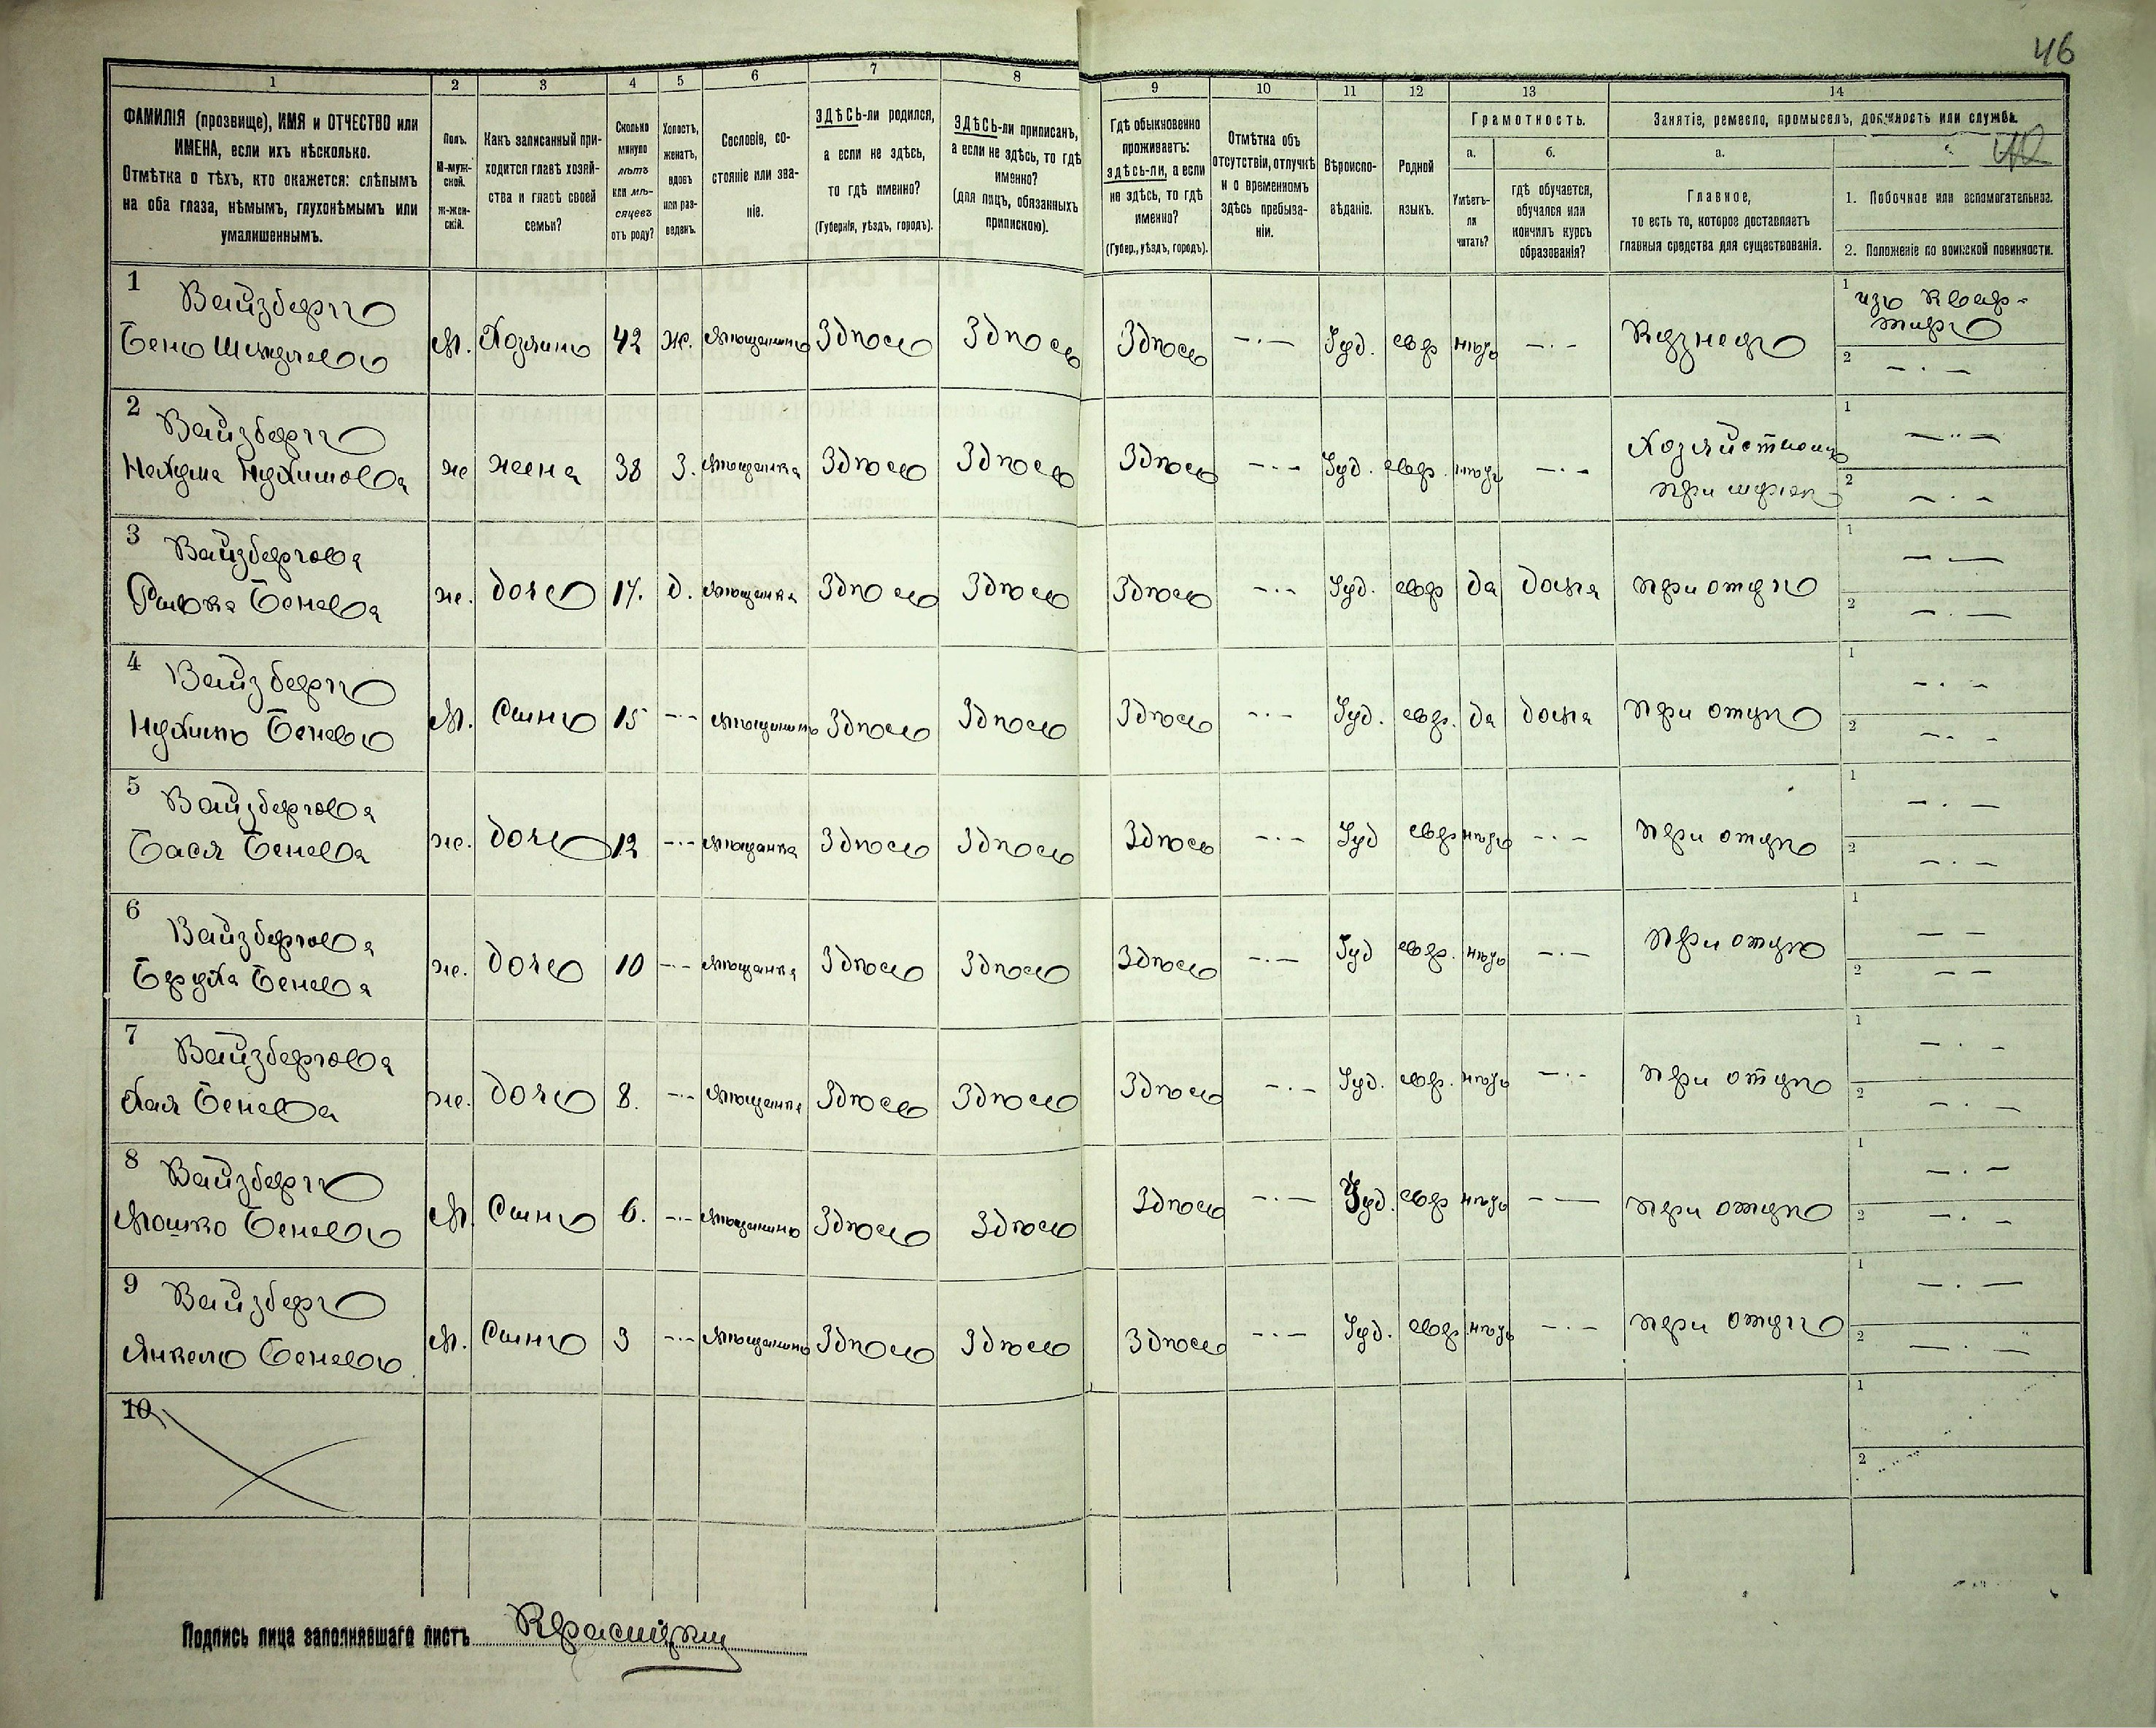 46
1
2
3
4
5
6
7
8
9
10
11
12
13
14
ФАМИЛІЯ (прозвище), ИМЯ и ОТЧЕСТВО или
ИМЕНА, если ихъ нѣсколько.
Отмѣтка о тѣхъ, кто окажется: слѣпымъ
на оба глаза, нѣмымъ, глухонѣмымъ или
умалишеннымъ.
Полъ.
М-муж-
ской.
Ж-жен-
скій.
Какъ записанный при-
ходится главѣ хозяй-
ства и главѣ своей
семьи?
Сколько
минуло
лѣтъ
или мѣ-
сяцевъ
отъ роду?
Холостъ,
женатъ,
вдовъ
или раз-
веденъ.
Сословіе, со-
стояніе или зва-
ніе.
ЗДѢСЬ-ли родился,
а если не здѣсь,
то гдѣ именно?
(Губернія, уѣздъ, городъ).
ЗДѢСЬ-ли приписанъ,
а если не здѣсь, то гдѣ
именно?
(для лицъ, обязанныхъ
припискою).
Гдѣ обыкновенно
проживаетъ:
здѣсь-ли, а если
не здѣсь, то гдѣ
именно?
(Губер., уѣздъ, городъ).
Отмѣтка объ
отсутствіи, отлучкѣ
и о временномъ
здѣсь пребыва-
ніи.
Вѣроиспо-
вѣданіе.
Родной
языкъ.
Грамотность.
а.
Умѣетъ-
ли
читать?
б.
гдѣ обучается,
обучался или
кончилъ курсъ
образованія?
Занятіе, ремесло, промыселъ, должность или служба.
а.
Главное,
то есть то, которое доставляетъ
главныя средства для существованія.
1. Побочное или вспомогательное.
2. Положеніе по воинской повинности.
1 Вайзбергъ
Бень Шмулевъ М. Хозяинъ 42 ж. Мѣщанинъ Здѣсь Здѣсь Здѣсь — · — Іуд. евр нѣтъ — · — Кузнецъ 1 изъ квар-
тиръ
2 — · —
2 Вайзбергъ
Нехума Нухимова ж жена 38 З. Мѣщанка Здѣсь Здѣсь Здѣсь — · — Іуд. евр. нѣтъ — · — Хозяйством
при муже 1 — ·· —
2 — · —
3 Вайзбергова
Ривка Бенева ж. дочь 17. д. Мѣщанка Здѣсь Здѣсь Здѣсь — · — Іуд. евр да дома при отцѣ 1 — · —
2 — · —
4 Вайзбергъ
Нухимъ Беневъ М. Сынъ 15 — · — Мѣщанинъ Здѣсь Здѣсь Здѣсь — · — Іуд. евр. да дома при отцѣ 1 — · —
2 — · —
5 Вайзбергова
Бася Бенева ж. дочь 12 — · — Мѣщанка Здѣсь Здѣсь Здѣсь — · — Іуд евр нѣтъ — · — при отцѣ 1 — · —
2 — · —
6 Вайзбергова
Бруха Бенева ж. дочь 10 — · — Мѣщанка Здѣсь Здѣсь Здѣсь — · — Іуд евр. нѣтъ — · — при отцѣ 1 — —
2 — —
7 Вайзбергова
Хая Бенева ж. дочь 8. — · — Мѣщанка Здѣсь Здѣсь Здѣсь — · — Іуд. евр. нѣтъ — · — при отцѣ 1 — · —
2 — · —
8 Вайзбергъ
Мошко Беневъ М. Сынъ 6. — · — Мѣщанинъ Здѣсь Здѣсь Здѣсь — · — Іуд. евр нѣтъ — — при отцѣ 1 — · —
2 — · —
9 Вайзберг
Янкель Беневъ М. Сынъ 3 — · — Мѣщанинъ Здѣсь Здѣсь Здѣсь — · — Іуд. евр. нѣтъ — · — при отцѣ 1 — · —
2 — · —
10 1
2
Подпись лица заполнявшаго листъ